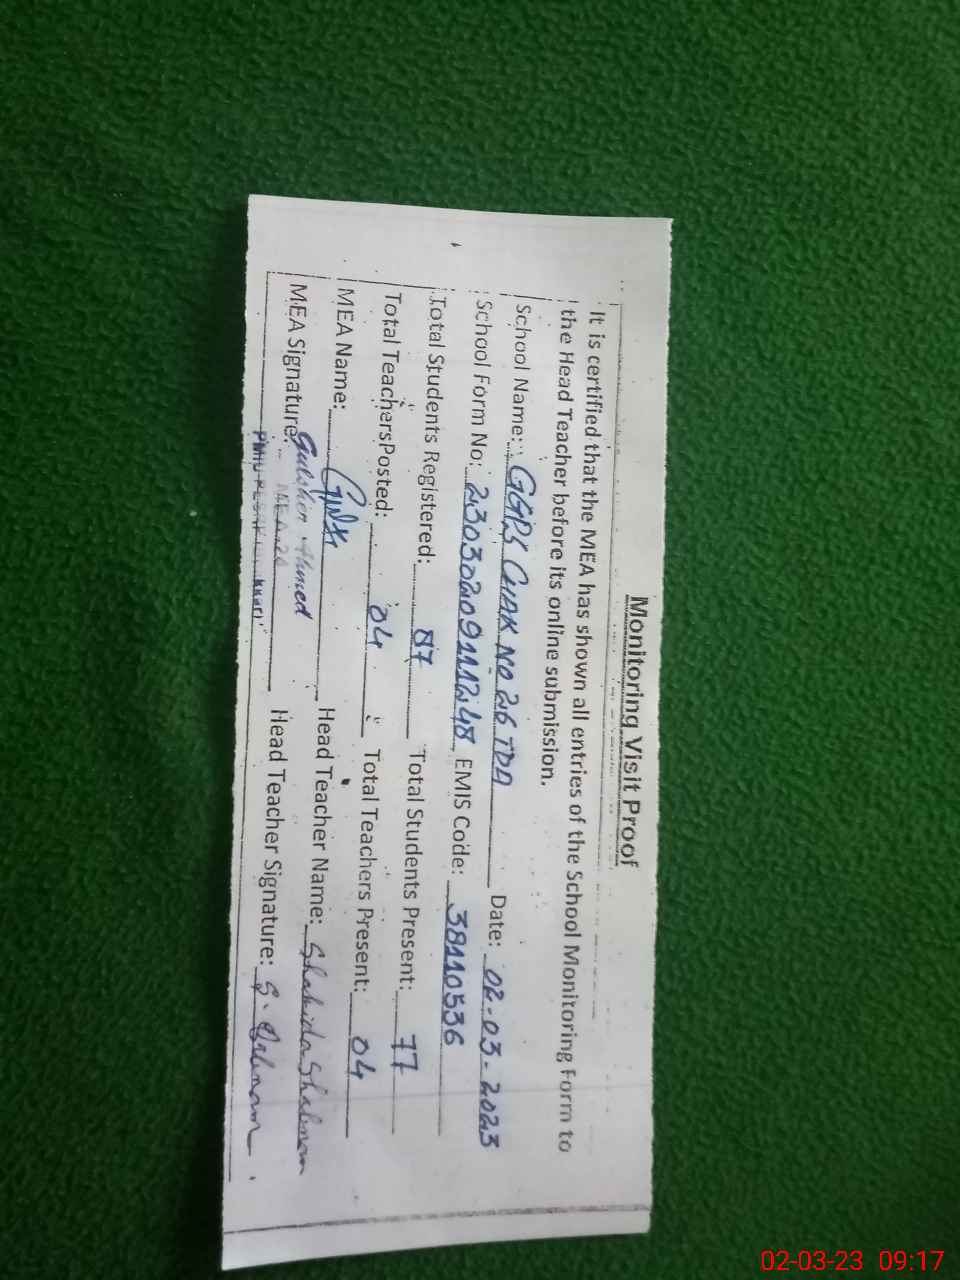 Monitoring Visit Proof
It is certified that the MEA has shown all entries of the School Monitoring Form to
the Head Teacher before its online submission.
School Name: GGPS CHAK NO 26 TDA Date: 02-03-2023
School Form No: 23030209111248 EMIS Code: 38110536
Total Students Registered: 87 Total Students Present: 77
Total Teachers Posted: 04 Total Teachers Present: 04
MEA Name: Head Teacher Name: Shahida Shabnam
MEA Signature: Gulsher Ahmed Head Teacher Signature: S. Shabnam
MEA
02-03-23 09:17